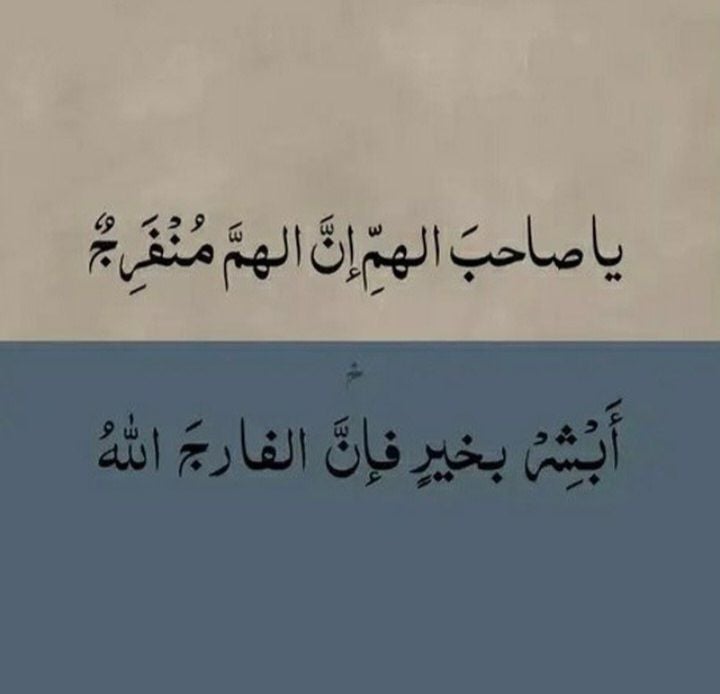 يا صاحبَ الهمِّ إنَّ الهمَّ مُنْفَرِجٌ
أَبْشِرْ بخيرٍ فإنَّ الفارجَ اللهُ